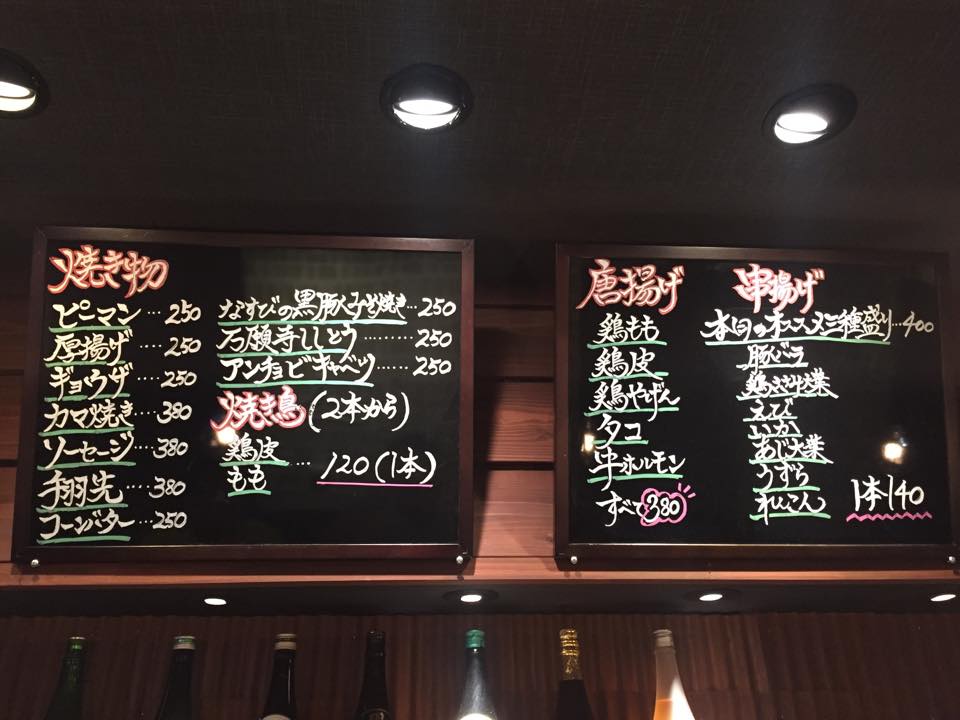 焼き物
ピーマン…250
厚揚げ…250
ギョウザ…250
カマ焼き…380
ソーセージ…380
手羽先…380
コーンバター…250
なすびの黒豚みそ焼き…250
石願寺ししとう………250
アンチョビキャベツ……250
焼き鳥(2本から)
鶏皮
もも…120(1本)
唐揚げ
鶏もも
鶏皮
鶏やげん
タコ
牛ホルモン
すべて380
串揚げ
本日のオススメ三種盛り…400
豚バラ
鶏ささみ大葉
えび
いか
あじ大葉
うずら
れんこん
1本140